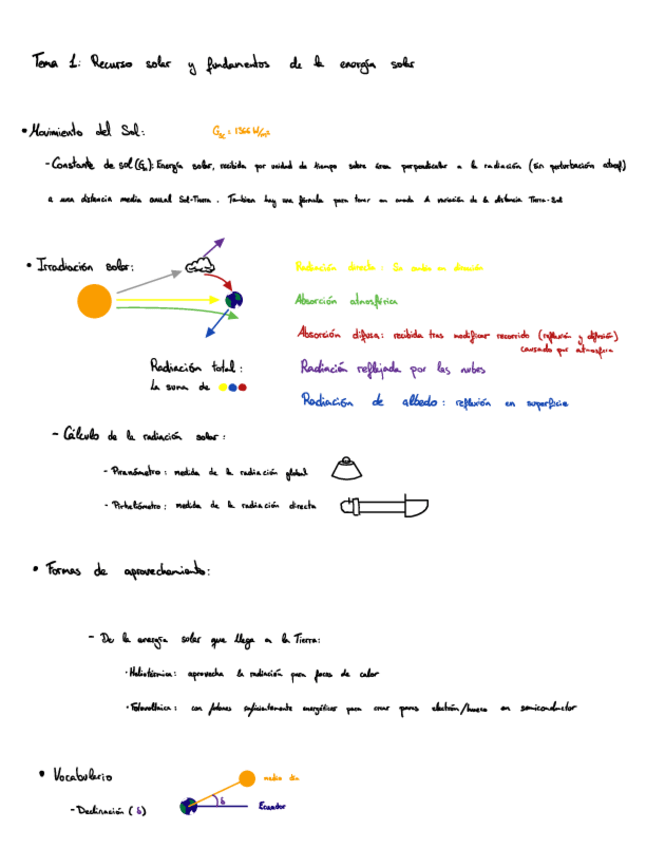 Tema 1: Recurso solar y fundamentos de la energía solar
• Movimiento del Sol: Gsc = 1366 W/m²
- Constante de sol (Gs): Energía solar, recibida por unidad de tiempo sobre área perpendicular a la radiación (sin perturbación atmosf)
a una distancia media anual Sol-Tierra. Tambien hay una fórmula para tener en cuenta la variación de la distancia Tierra-Sol
• Irradiación solar:
Radiación directa: Sin cambio en dirección
Absorción atmosférica
Absorción difusa: recibida tras modificar recorrido (reflexión y difusión)
causado por atmosfera
Radiación total:
La suma de
Radiación reflejada por las nubes
Radiación de albedo: reflexión en superficie
- Cálculo de la radiación solar:
- Piranómetro: medida de la radiación global
- Pirheliómetro: medida de la radiación directa
• Formas de aprovechamiento:
- De la energía solar que llega a la Tierra:
• Heliotécnica: aprovecha la radiación para focos de calor
• Fotovoltaica: con fotones suficientemente energéticos para crear pares electrón/hueco en semiconductor
• Vocabulario
medio dia
- Declinación (δ)
δ
Ecuador